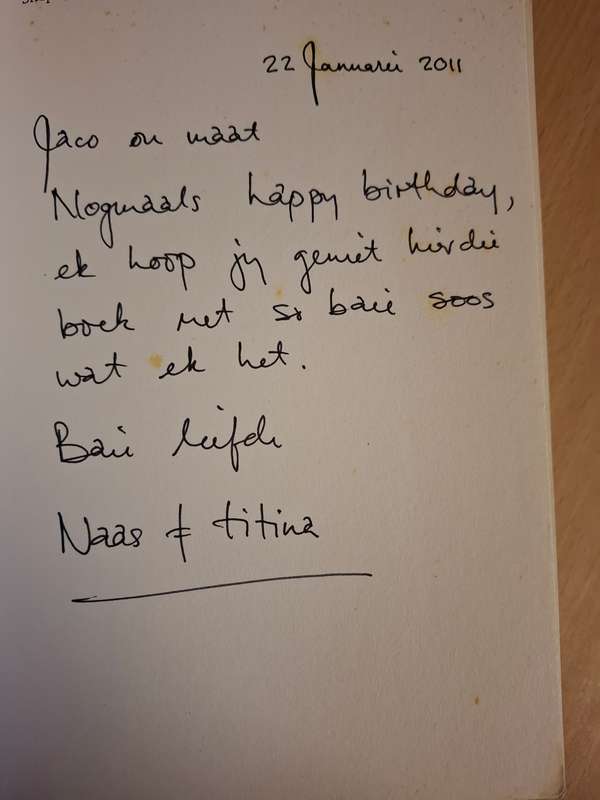 22 Januarei 2011
Jaco ou maat
Nogmaals happy birthday,
ek hoop jy geniet hierdie
boek net so baie soos
wat ek het.
Baie liefde
Naas & titina